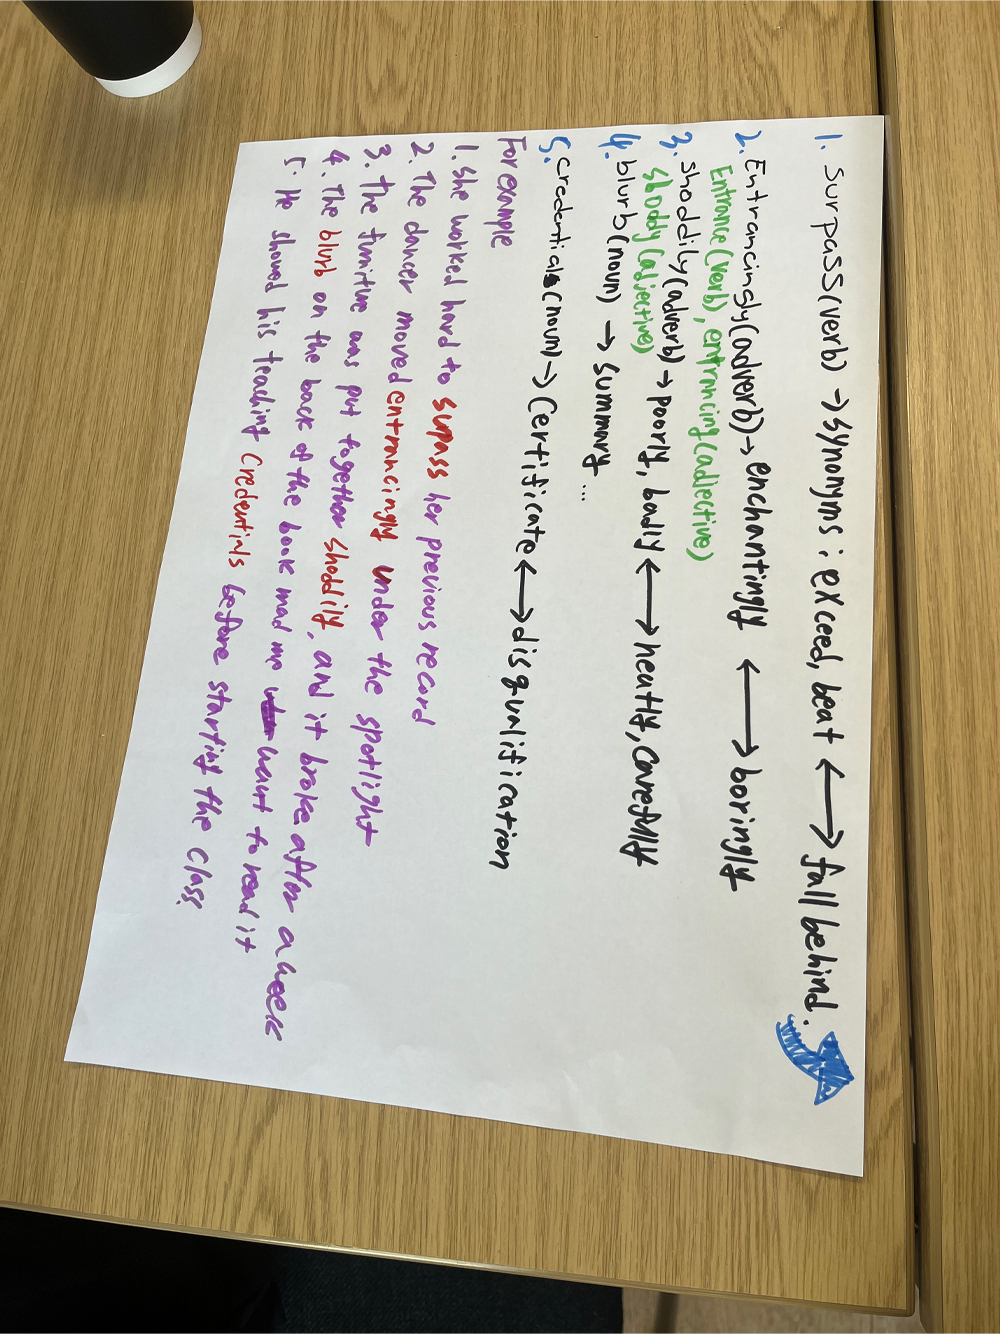 1. surpass(verb) → synonyms : exceed, beat ⟷ fall behind.
2. Entrancingly(adverb) → enchantingly ⟷ boringly
Entrance(verb), entrancing(adjective)
3. shoddily(adverb) → poorly, badly ⟷ neatly, carefully
shoddy(adjective)
4. blurb(noun) → summry ...
5. credential (noun) → Certificate ⟷ disqualification
For example
1. she worked hard to supass her previous record
2. The dancer moved entrancingly under the spotlight
3. the furniture was put together shoddily, and it broke after a week
4. The blurb on the back of the book mad me want to read it
5. He showed his teaching Credentials before starting the class.